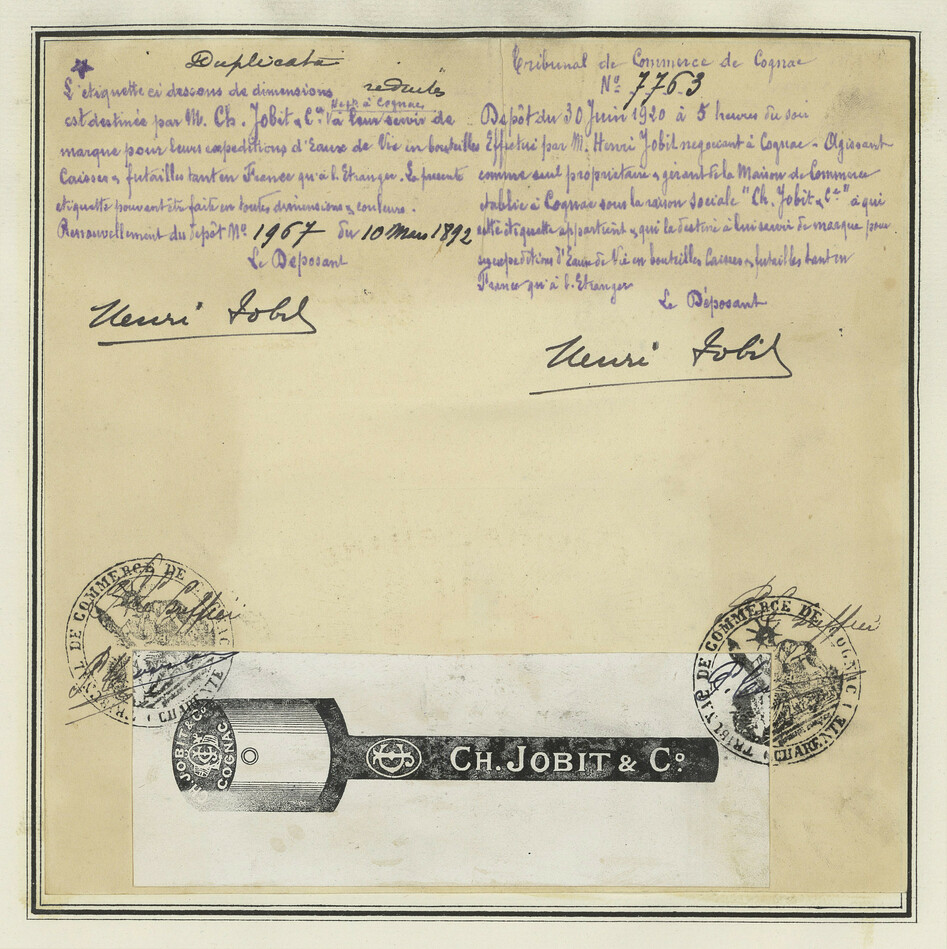 Duplicata
L'etiquette ci dessous de dimensions reduites
Negts à Cognac
est destinée par M. Ch. Jobit & Cie à leur servir de
marque pour leurs expeditions d'Eaux de Vie en bouteilles
Caisses & futailles tant en France qu'à l'Etranger. La presente
etiquette pouvant être faite en toutes dimensions & couleurs.
Renouvellement du depôt No 1967 du 10 Mars 1892
Le Deposant
Henri Jobit
Tribunal de Commerce de Cognac
No 7763
Depôt du 30 Juin 1920 à 5 heures du soir
Effectué par M. Henri Jobit negociant à Cognac - Agissant
comme seul propriétaire & gérant de la Maison de Commerce
etablie à Cognac sous la raison sociale "Ch. Jobit & Cie" à qui
cette étiquette appartient & qui la destine à lui servir de marque pour
ses expeditions d'Eaux de Vie en bouteilles Caisses & futailles tant en
France qu'à l'Etranger
Le Déposant
Henri Jobit
TRIBUNAL DE COMMERCE DE COGNAC
CHARENTE
TRIBUNAL DE COMMERCE DE COGNAC
CHARENTE
CH. JOBIT & Co
COGNAC
CH. JOBIT & Co